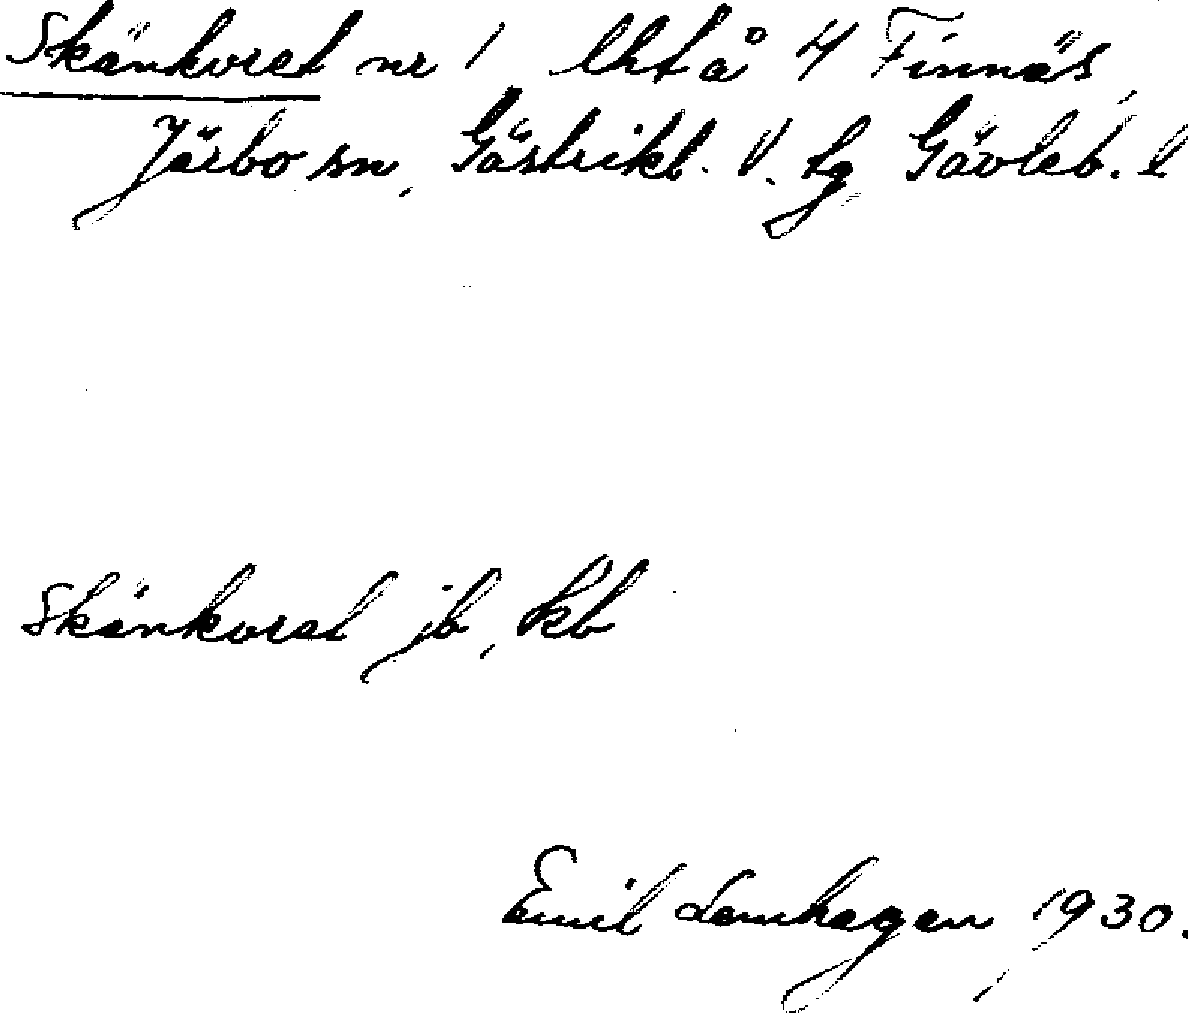 Skänkoret nr 1 lht å 4 Finnäs,
Järbo sn, Gästrikl. V. tg, Gävleb. l
Skänkoret jb, kb
Emil Lamhagen, 1930.